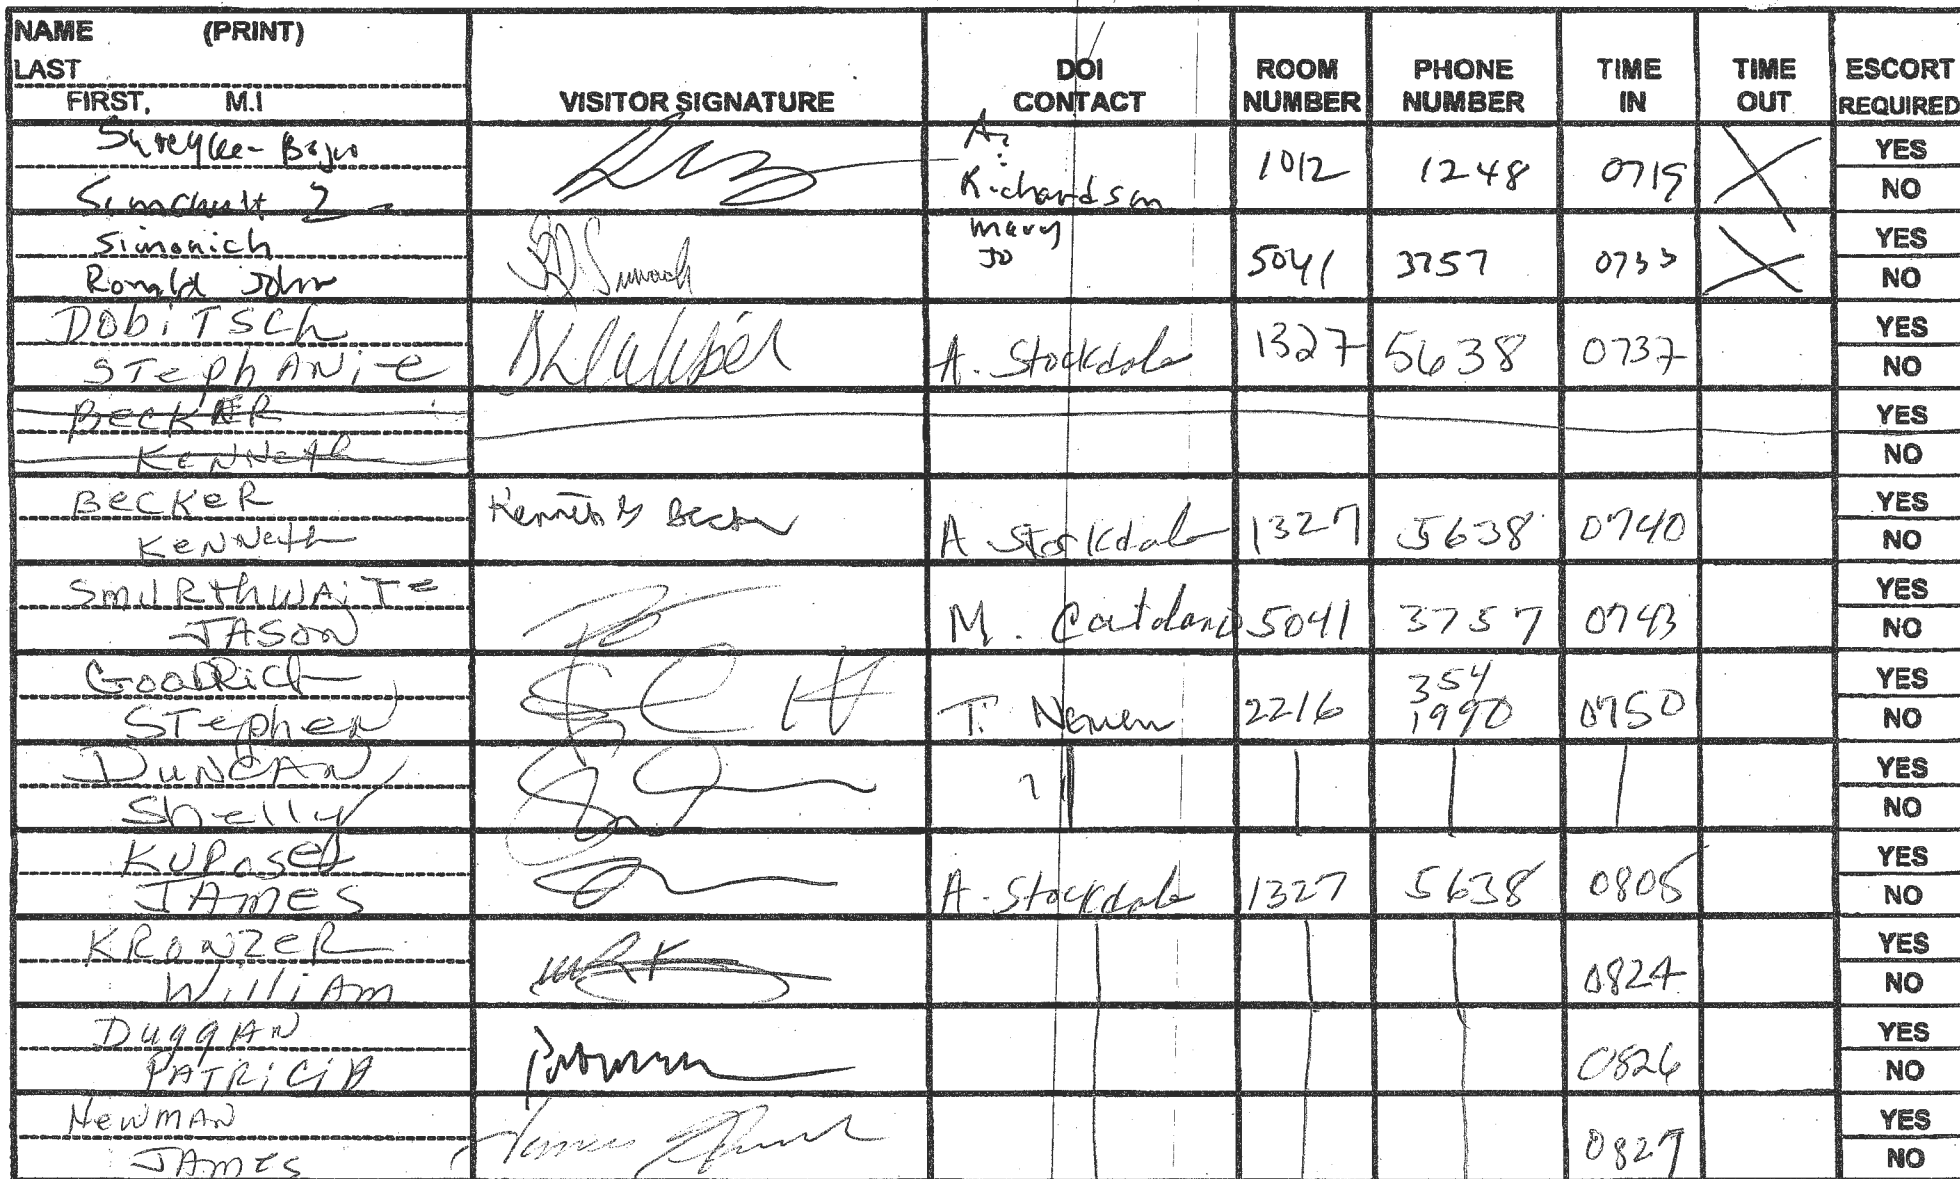 NAME (PRINT)
LAST
FIRST, M.I
VISITOR SIGNATURE
DOI CONTACT
ROOM NUMBER
PHONE NUMBER
TIME IN
TIME OUT
ESCORT REQUIRED
Richardson 1012 1248 0719 YES NO
Simonich
Ronald John
Mary Jo 5041 3757 0733 YES NO
DobiTSCh
STephANie
A. Stockdale 1327 5638 0737 YES NO
BeckeR
KeNNeth
YES NO
BeCKeR
KeNNeth
Kenneth G Becker
A Stockdale 1327 5638 0740 YES NO
SmURthWAiTe
JASON
M. 5041 3757 0743 YES NO
GoodRich
STephen
T. 2216 354 1990 0750 YES NO
DuNCAN
Shelly
YES NO
JAMES
A. Stockdale 1327 5638 0805 YES NO
KRoNZeR
WilliAm
0824 YES NO
DuggAN
PATRiCiA
0826 YES NO
NewMAN
JAMes
James
0827 YES NO